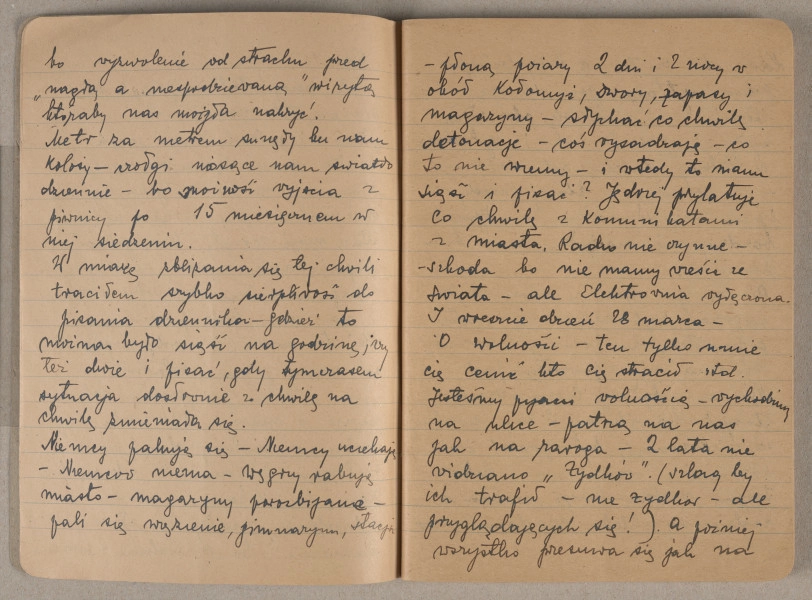 bo wyzwolenie od strachu przed
„nagłą a niespodziewaną" wizytą
któraby nas mogła nakryć.
Metr za metrem sunęły ku nam
kolosy – czołgi niosące nam światło
dzienne – bo możność wyjścia z
piwnicy po 15 miesięcznem w
niej siedzeniu.
W miarę zbliżania się tej chwili
traciłem szybko cierpliwość do
pisania dziennika – gdzież to
można było siąść na godzinę, czy
też dwie i pisać, gdy tymczasem
sytuacja dosłownie z chwilę na
chwilę zmieniała się.
Niemcy pakują się – Niemcy uciekają
– Niemców niema – węgrzy rabują
miasto – magazyny porozbijane –
pali się więzienie, gimnazjum, stacja
– płoną pożary 2 dni i 2 nocy w
obód Kołomyi, dwory, zapasy i
magazyny – słychać co chwilę
detonacje – coś wysadzają – co
to nie wiemy – i wtedy to mam
siąść i pisać? Jędrzej przylatuje
co chwilę z komunikatami
z miasta. Radio nie czynne –
– szkoda bo nie mamy wieści ze
świata – ale Elektrownia wyłączona.
I wreszcie dzień 28 marca –
O wolności – ten tylko umie
cię cenić kto cię stracił itd.
Jesteśmy pijani wolnością – wychodzimy
na ulice – patrzą na nas
jak na raroga – 2 lata nie
widziano „Żydków". (szlag by
ich trafił – nie żydków – ale
przyglądających się!). A później
wszystko przesuwa się jak na